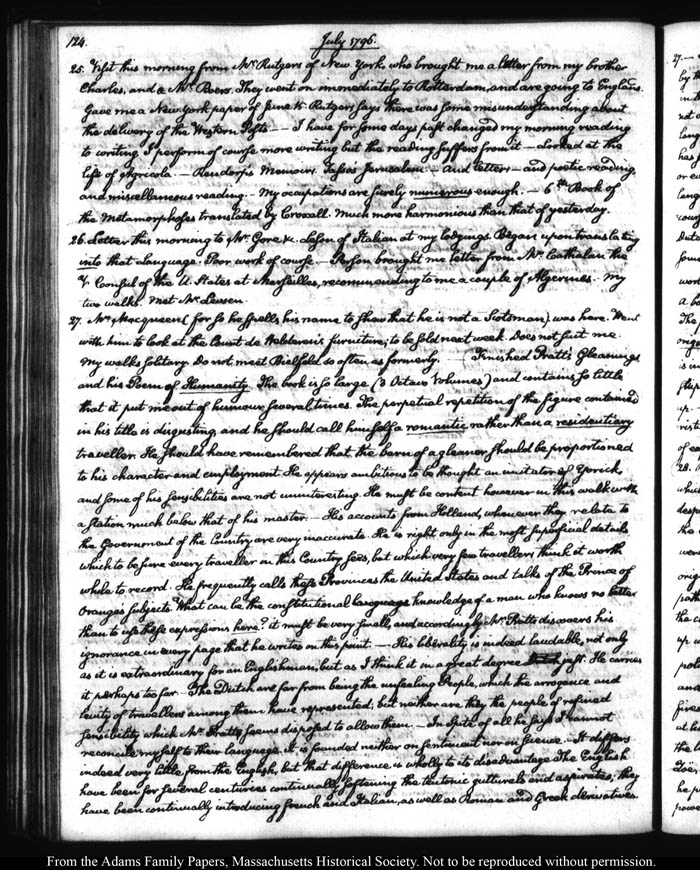 124.
July 1796.
25. Visit this morning from Mr. Rutgers of New York, who brought me a letter from my brother
Charles, and a Mr. Roers. They went on immediately to Rotterdam, and are going to England.
Gave me a New York paper of June 15. Rutgers says there was some misunderstanding about
the delivery of the Western Posts. — I have for some days past changed my morning reading
to writing. I perform of course more writing but the reading suffers from it — Looked at the
life of Agricola. — Rendorp's Memoirs. Tasso's Jerusalem — and letters — and poetic reading
and miscellaneous reading. My occupations are surely numerous enough. — 6th. Book of
the Metamorphoses translated by Croxall. Much more harmonious than that of yesterday.
26. Letter this morning to Mr. Gore &c. Lesson of Italian at my lodgings. Began upon translating
into that Language. Poor work of course. — Person brought me letter from Mr. Cathalan the
V. Consul of the U. States at Marseilles, recommending to me a couple of Algerines. My
two walks. Met Mr.
27. Mr. Macqueen (for so he spells his name to show that he is not a Scotsman) was here. Went
with him to look at the Count de Welderen's furniture; to be sold next week. Does not suit me.
My walks solitary. Do not meet Bielfeld so often as formerly. — Finished Pratt's Gleanings
and his Poem of Humanity. The book is so large (3 Octavo Volumes) and contains so little
that it put me out of humour several times. The perpetual repetition of the figure contained
in his title is disgusting, and he should call himself a romantic rather than a residentiary
traveller. He should have remembered that the barn of a gleaner should be proportioned
to his character and employment. He appears ambitious to be thought an imitator of Yorick,
and some of his sensibilities are not uninteresting. He must be content however in this walk with
a station much below that of his master. — His accounts from Holland, whenever they relate to
the Government of the Country are very inaccurate. He is right only in the most superficial details
which to be sure every traveller in this Country sees, but which very few travellers think it worth
while to record. He frequently calls these Provinces the United States and talks of the Prince of
Orange's subjects. What can be the constitutional language knowledge of a man who knows no better
than to use these expressions here? it must be very small, and accordingly Mr. Pratt discovers his
ignorance in every page that he writes on this point. — His liberality is indeed laudable, not only
as it is extraordinary for an Englishman, but as I think it in a great degree just. He carries
it perhaps too far. The Dutch are far from being the unfeeling People, which the arrogance and
levity of travellers among them have represented; but neither are they the people of refined
sensibility which Mr. Pratt seems disposed to allow them. — In spite of all he says I cannot
reconcile myself to their language. It is founded neither on sentiment nor on science. It differs
indeed very little from the English, but that difference is wholly to its disadvantage. The English
have been for several centuries continually softening the teutonic gutturals and aspirates; they
have been continually introducing french and Italian, as well as Roman and Greek derivatives.
From the Adams Family Papers, Massachusetts Historical Society. Not to be reproduced without permission.